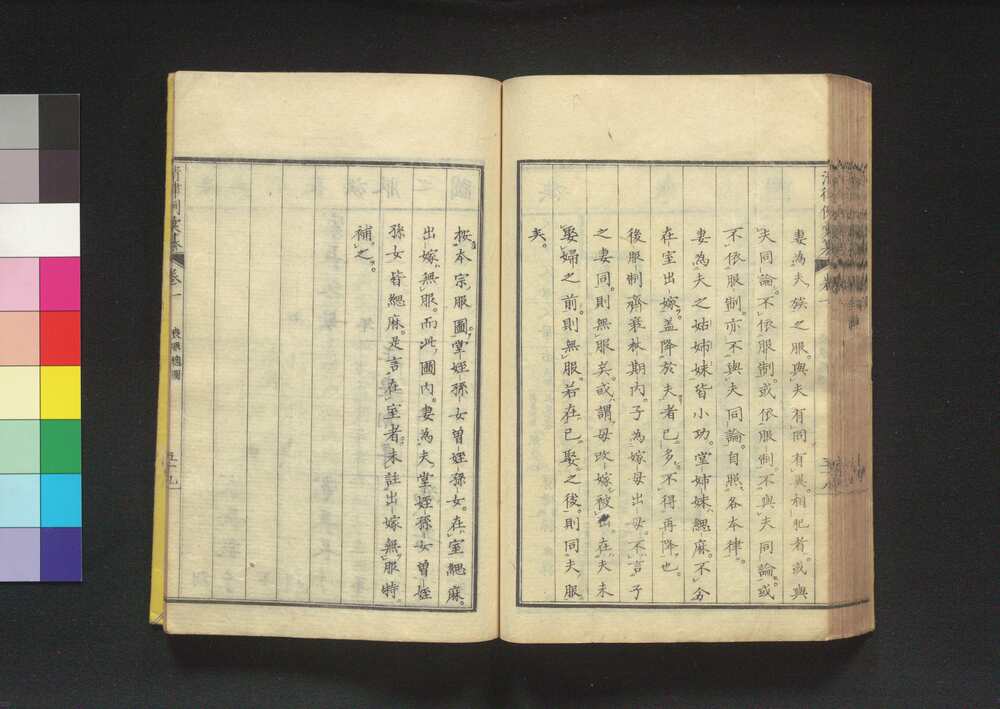 妻為夫族之服。與夫有同有異。相犯者。或與
夫同論。不依服制。或依服制。不與夫同論。或
不依服制。亦不與夫同論。自照各本律。
妻為夫之姑姉妹皆小功。堂姉妹緦麻。不分
在室出嫁。蓋降於夫者已多。不得再降也。
後服制齊衰杖期內。子為嫁母出母。不言子
之妻同。則無服矣。或謂母改嫁被出。在夫未
娶婦之前。則無服。若在已娶之後。則同夫服
矣。
按本宗服圖。堂姪孫女曾姪孫女。在室緦麻。
出嫁無服。而此圖內。妻為夫堂姪孫女曾姪
孫女皆緦麻。是言在室者。未註出嫁無服。特
補之。
清律例彙纂
卷一
喪服總圖
五十九